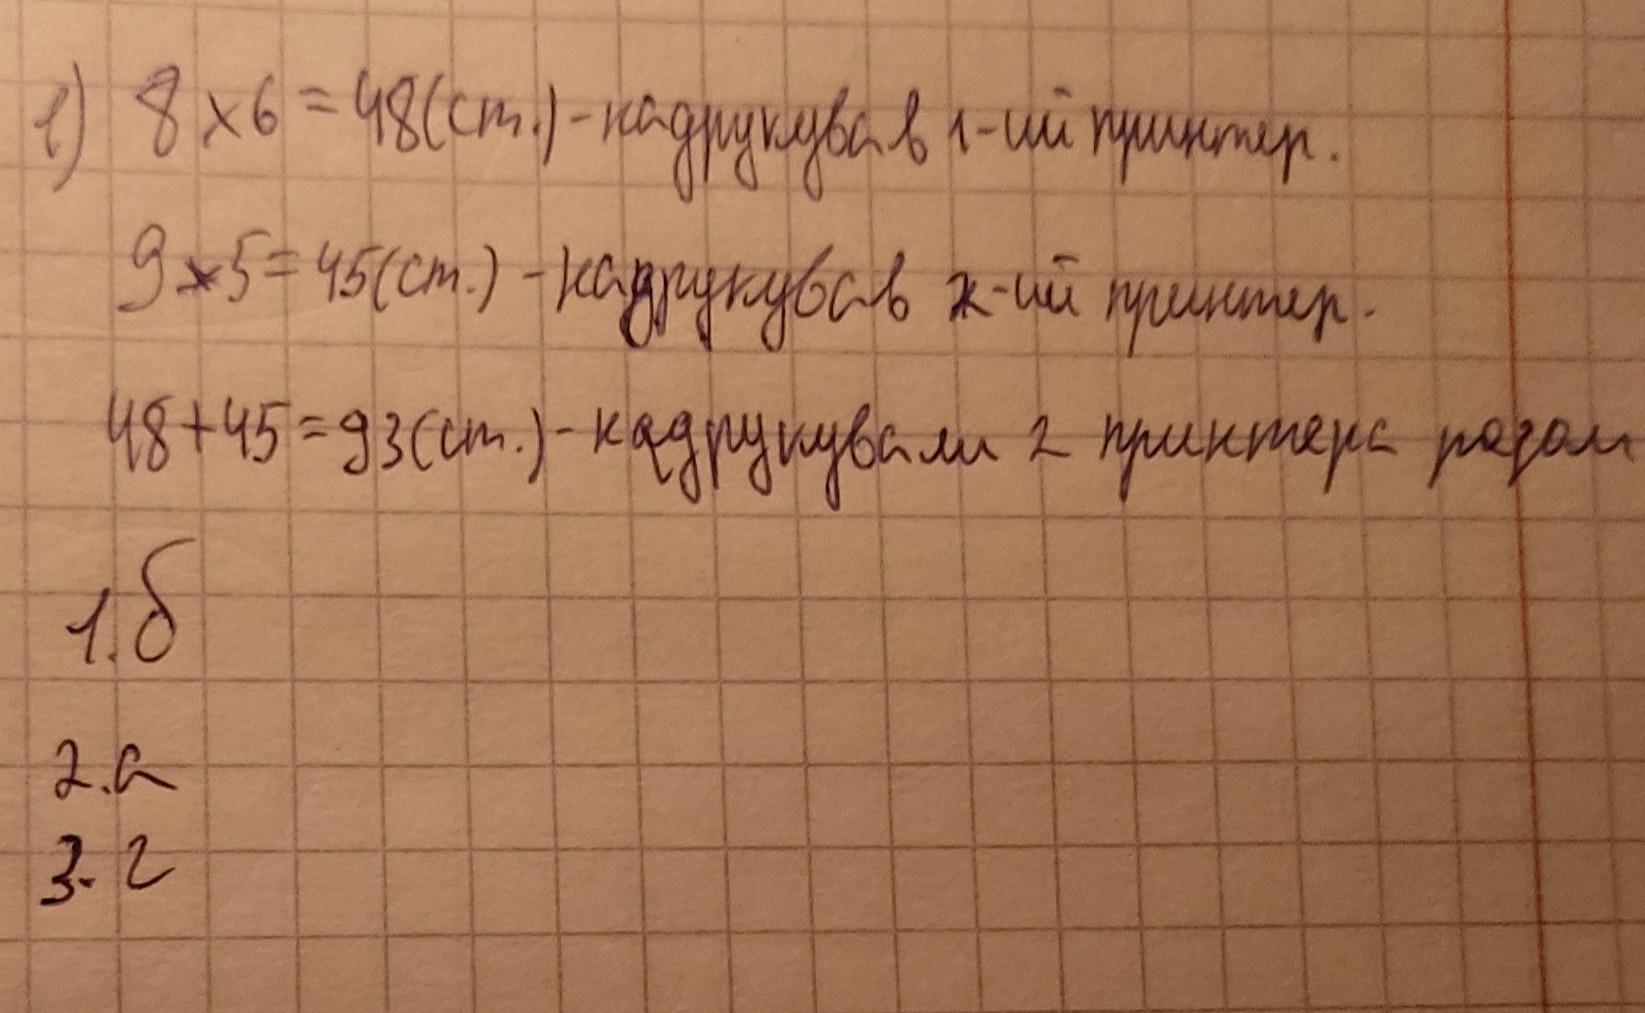 1) 8 × 6 = 48 (ст.) - надрукував 1-ий принтер.
9 × 5 = 45 (ст.) - надрукував 2-ий принтер.
48 + 45 = 93 (ст.) - надрукували 2 принтера разом
1. б
2. а
3. г